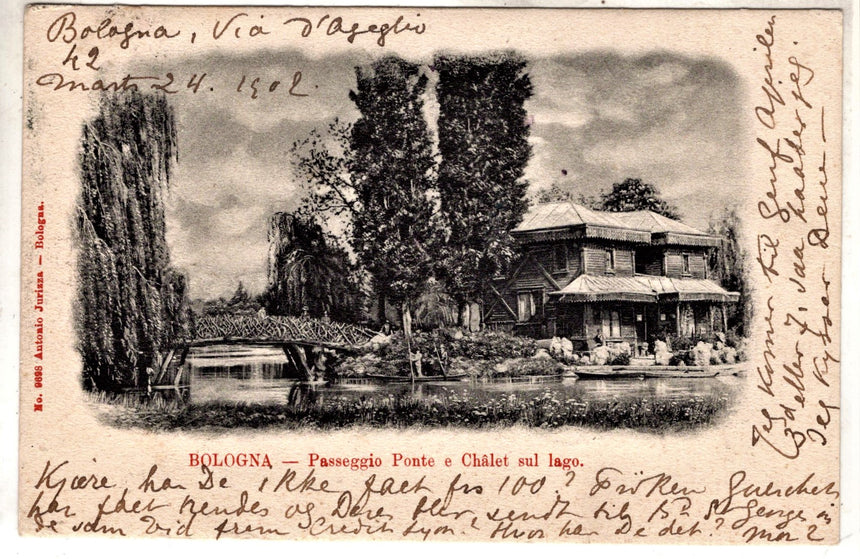 Bologna, Via D'Azeglio
42
Marts 24. 1902.
No. 9698 Antonio Jurizza — Bologna.
BOLOGNA — Passeggio Ponte e Châlet sul lago.
Kjære, har De ikke faet frs 100? Fröken Guerchets
har faet hendes og Deres blev sendt til Bd St George in
de som Vid frem Credit Lyon? Hvor har De det? Mor?
Jeg kommer til Genf Aprilen
3 deller 7, saa haaber jeg.
Jeg kysser Dem —